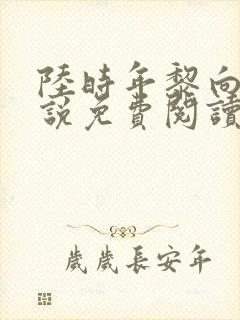 陸時年黎向
說免費閱讀
歲歲長安年